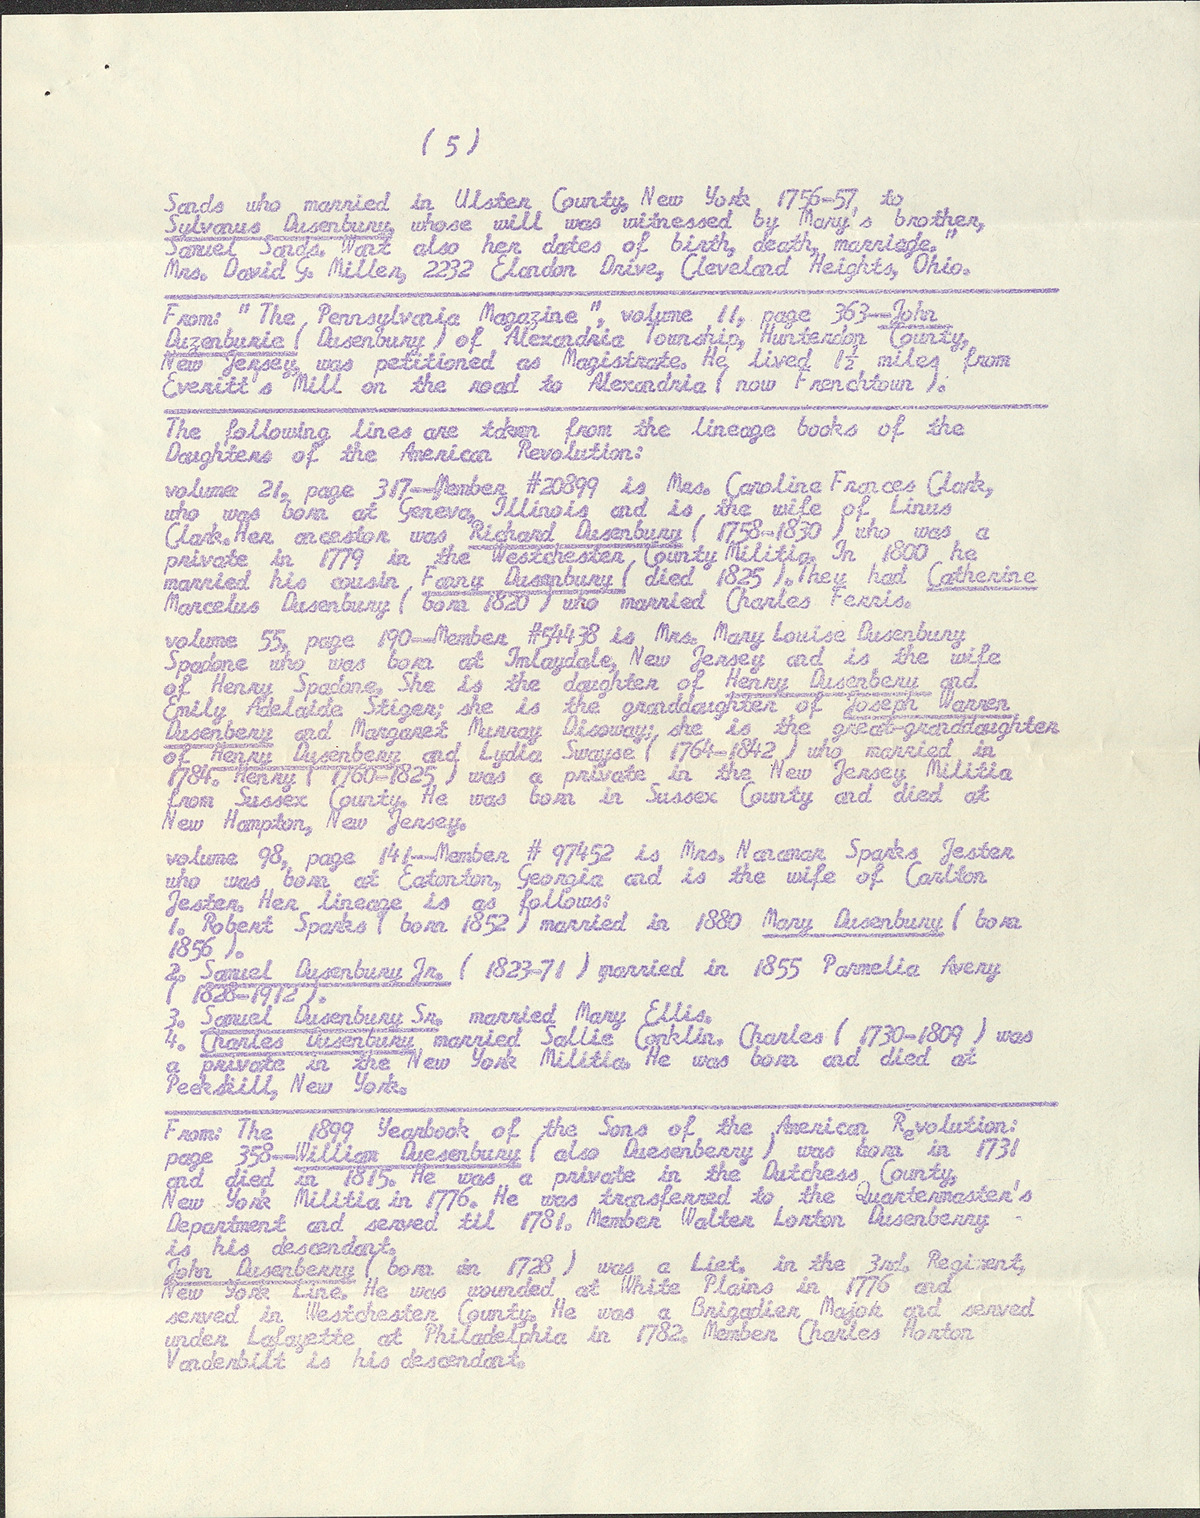 ( 5 )
Sands who married in Ulster County, New York 1756-57, to
Sylvanus Dusenbury, whose will was witnessed by Mary's brother,
Samuel Sands. Want also her dates of birth, death, marriage."
Mrs. David G. Miller, 2232 Elandon Drive, Cleveland Heights, Ohio.
From: " The Pennsylvania Magazine ", volume 11, page 363--John
Duzenburie ( Dusenbury ) of Alexandria Township, Hunterdon County,
New Jersey, was petitioned as Magistrate. He lived 1½ miles from
Everitt's Mill on the road to Alexandria ( now Frenchtown ).
The following lines are taken from the lineage books of the
Daughters of the American Revolution:
volume 21, page 317--Member #20899 is Mrs. Caroline Frances Clark,
who was born at Geneva, Illinois and is the wife of Linus
Clark. Her ancestor was Richard Dusenbury ( 1758-1830 ) who was a
private in 1779 in the Westchester County Militia. In 1800 he
married his cousin Fanny Dusenbury ( died 1825 ). They had Catherine
Marcelus Dusenbury ( born 1820 ) who married Charles Ferris.
volume 55, page 190--Member #54438 is Mrs. Mary Louise Dusenbury
Spadone who was born at Imlaydale, New Jersey and is the wife
of Henry Spadone. She is the daughter of Henry Dusenbery and
Emily Adelaide Stiger; she is the granddaughter of Joseph Warren
Dusenbery and Margaret Murray Disoway; she is the great-granddaughter
of Henry Dusenbery and Lydia Swayse ( 1764-1842 ) who married in
1784. Henry ( 1760-1825 ) was a private in the New Jersey Militia
from Sussex County. He was born in Sussex County and died at
New Hampton, New Jersey.
volume 98, page 141--Member # 97452 is Mrs. Naraman Sparks Jester
who was born at Eatonton, Georgia and is the wife of Carlton
Jester. Her lineage is as follows:
1. Robert Sparks ( born 1852 ) married in 1880 Mary Dusenbury ( born
1856 ).
2. Samuel Dusenbury Jr. ( 1823-71 ) married in 1855 Parmelia Avery
( 1828-1912 ).
3. Samuel Dusenbury Sr. married Mary Ellis.
4. Charles Dusenbury married Sallie Conklin. Charles ( 1730-1809 ) was
a private in the New York Militia. He was born and died at
Peekskill, New York.
From: The 1899 Yearbook of the Sons of the American Revolution:
page 358--William Duesenbury ( also Duesenberry ) was born in 1731
and died in 1815. He was a private in the Dutchess County,
New York Militia in 1776. He was transferred to the Quartermaster's
Department and served til 1781. Member Walter Lorton Dusenberry
is his descendant.
John Dusenberry ( born in 1728 ) was a Liet. in the 3rd. Regiment,
New York Line. He was wounded at White Plains in 1776 and
served in Westchester County. He was a Brigadier Major and served
under Lafayette at Philadelphia in 1782. Member Charles Horton
Vanderbilt is his descendant.